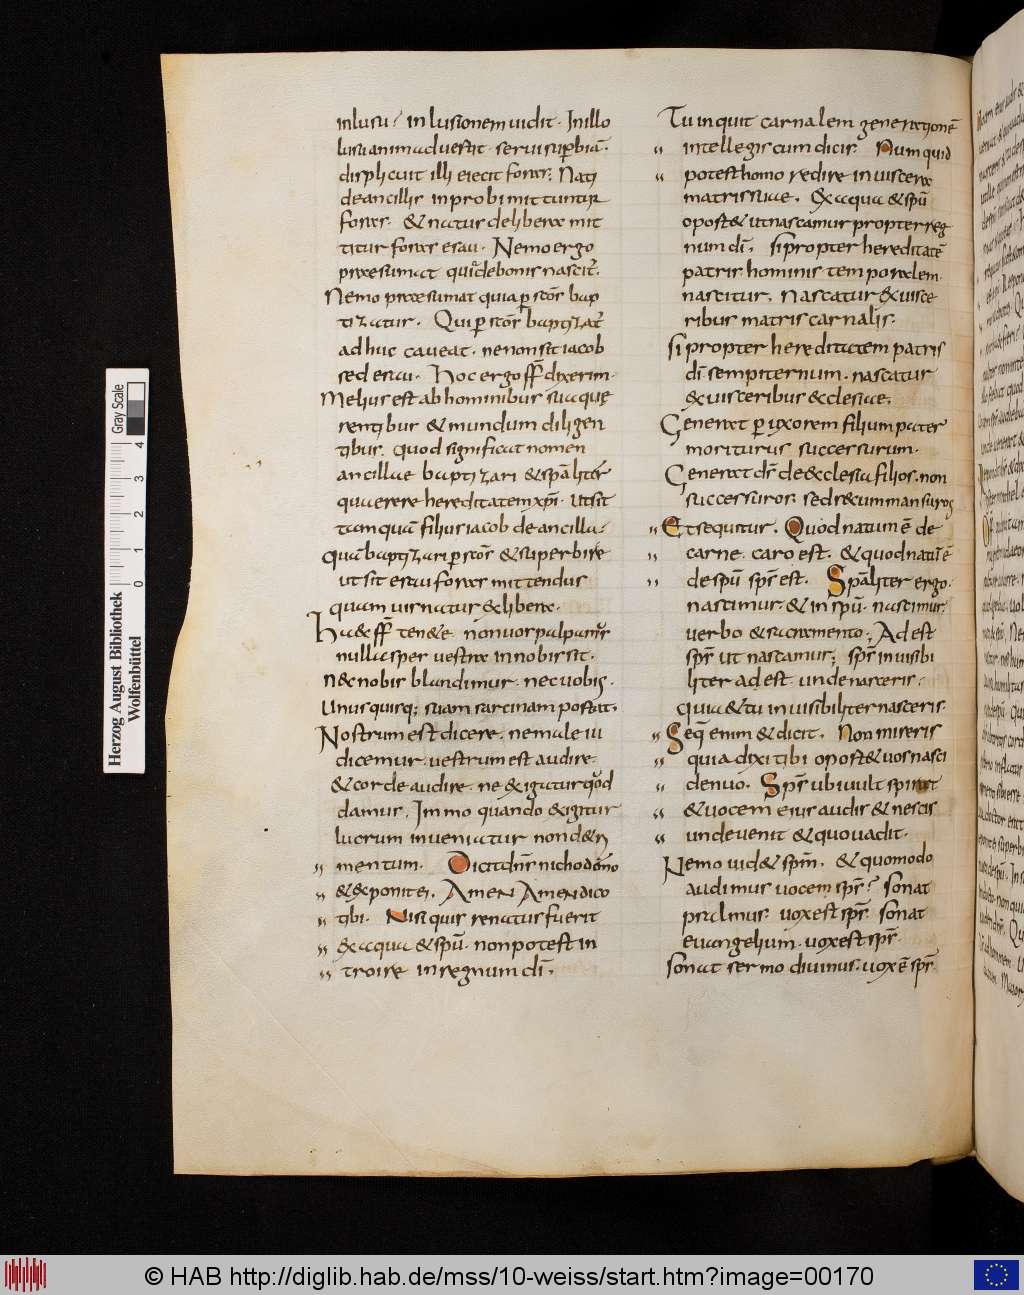 in lusu? in lusionem uidit. In illo
lusu animaduertit. serui superbiã.
displicuit illi eiecit foras; Nati
de ancillis inprobi mittuntur
foras. & natus de libera mit
titur foras esau. Nemo ergo
praesumat quia de bonis nascit̃.
Nemo praesumat quia p̱ scõs bap
tizatur. Qui p̱ scõs baptizat̃
adhuc caueat. ne non sit iacob
sed esau. Hoc ergo ff̃ dixerim.
Melius est ab hominibus sua quę
rentibus & mundum diligen
tibus. quod significat nomen
ancillae baptizari & sp̃aliter
quaerere hereditatem xp̃i. ut sit
tamquã filius iacob de ancilla.
Quã baptizari p̱ scõs & superbire
ut sit esau foras mittendus
quam uis natus & libera.
Haec ff̃ tenete. non uos palpam̃
nulla sper uestra in nobis sit.
nec nobis blandimur. nec uobis.
Unusquisq; suam sarcinam portat.
Nostrum est dicere. ne male iu
dicemur. uestrum est audire.
& corde audire. ne exigatur quod
damus. Immo quando exigitur
lucrum inueniatur non detri
mentum. Dicit dñs nichodemo
& exponit ei. Amen Amen dico
tibi. Nisi quis renatus fuerit
ex aqua & sp̃u. non potest in
troire in regnum dĩ.
Tu inquit carnalem generationẽ
intellegis cum dicis; Numquid
potest homo redire in uiscera
matris suae. Ex aqua & sp̃u
oportet ut nascamur propter reg
num dĩ. si propter hereditatẽ
patris hominis temporalem
nascitur. nascatur ex uisce
ribus matris carnalis.
si propter hereditatem patris
dĩ sempiternum. nascatur
ex uisceribus ecclesiae.
Generat p̱ uxorem filium pater
moriturus successurum.
Generat dš de ecclesia filios. non
successuros. sed secum mansuros
Et sequitur. Quod natum ẽ de
carne. caro est. & quod natũ ẽ
de sp̃u sp̃s est. Sp̃aliter ergo.
nascimur. & in sp̃u. nascimur.
uerbo & sacramento. Adest
sp̃s ut nascamur; sp̃s inuisibi
liter adest unde nasceris.
quia & tu inuisibiliter nasceris.
Seq̃ enim & dicit. Non mireris
quia dixi tibi oportet uos nasci
denuo. Sp̃s ubi uult spirat
& uocem eius audis & nescis
unde uenit & quo uadit.
Nemo uidet sp̃m. & quomodo
audimus uocem sp̃s? sonat
psalmus. uox est sp̃s. sonat
euangelium. uox est sp̃s.
sonat sermo diuinus. uox ẽ sp̃s
Herzog August Bibliothek
Wolfenbüttel
Gray Scale
0 1 2 3 4
© HAB http://diglib.hab.de/mss/10-weiss/start.htm?image=00170